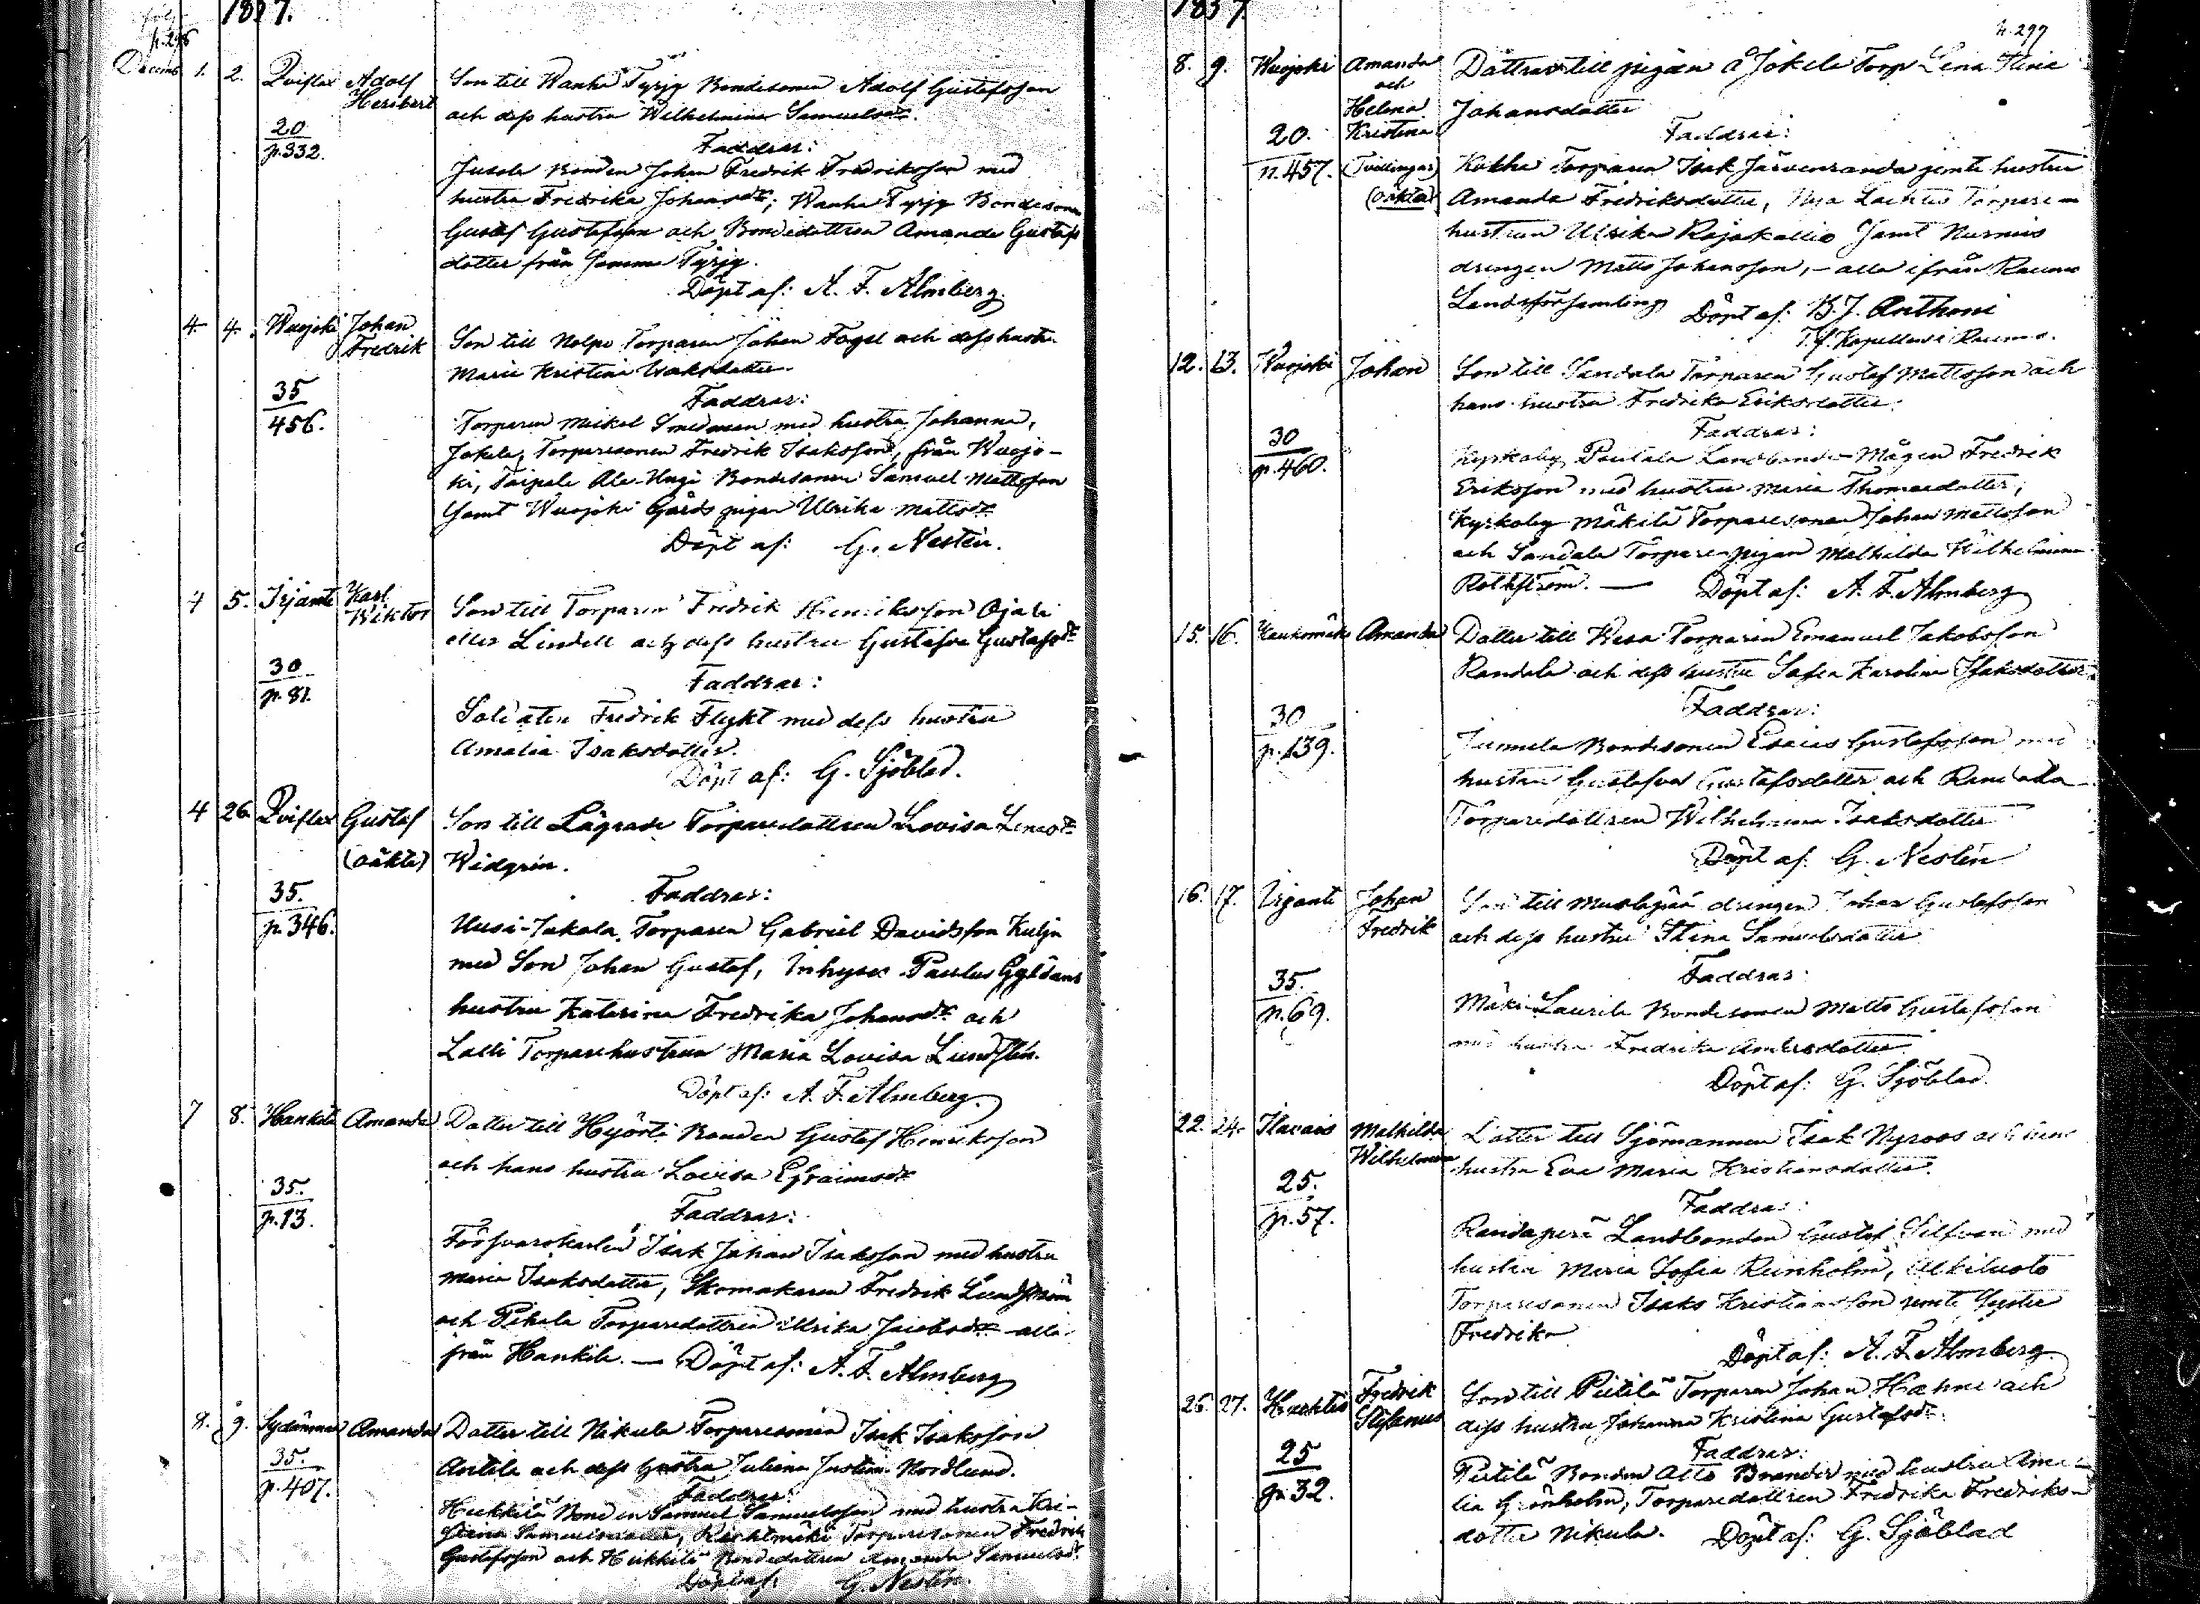 1857.
p. 296
Decemb. 1. 2. Qviflax Adolf Heribert
20
p. 332.
Son till Wanha Tyrjy Bondesonen Adolf Gustafsson
och dess hustru Wilhelmina Samuelsdr.
Faddrar:
Jusala Bonden Johan Fredrik Fredriksson med
hustru Fredrika Johansdr; Wanha Tyrjy Bondesonen
Gustaf Gustafsson och Bondedottren Amanda Gustafs
dotter från samma Tyrjy.
Döpt af: A. F. Almberg.
4. 4. Wuojoki Johan Fredrik
35
456.
Son till Nolpo Torparen Johan Fogel och dess hustru
Maria Kristina Isaksdotter.
Faddrar:
Torparen Mickel Smedman med hustru Johanna,
Jokela, Torparesonen Fredrik Isaksson, från Wuojo-
ki, Taipale Ala-Uugi Bondesonen Samuel Mattsson
samt Wuojoki Gårds pigan Ulrika Mattsdr.
Döpt af: G. Nestin.
4 5. Irjante Karl Wiktor
30
p. 81.
Son till Torparen Fredrik Henriksson Ojala
eller Lindell och dess hustru Gustafva Gustafsdr
Faddrar:
Soldaten Fredrik Flygt med dess hustru
Amalia Isaksdotter.
Döpt af: G. Sjöblad.
4 26. Qviflax Gustaf
(oäkta)
35.
p. 346.
Son till Lägrade Torparedottren Lovisa
Widgrén.
Faddrar:
Uusi-Jakala Torparen Gabriel Davidsson Kulju
med Son Johan Gustaf, Inhyses Paulus Gyldéns
hustru Katarina Fredrika Johansdr och
Lalli Torparehustrun Maria Lovisa Lundstén.
Döpt af: A. F. Almberg.
7 8. Hankila Amanda
35.
p. 13.
Dotter till Hyörti Bonden Gustaf Henriksson
och hans hustru Lovisa Efraimsdr
Faddrar:
Försvarskarlen Isak Johan Isaksson med hustru
Maria Isaksdotter, Skomakaren Fredrik Lundström
och Pihala Torparedottren Ulrika Jacobsdr alla
från Hankila. — Döpt af: A. F. Almberg
8. 9. Sydänmaa Amanda
35.
p. 407.
Dotter till Nikula Torparesonen Isak Isaksson
Antila och dess hustru Juliana Justina Nordlund.
Faddrar:
Heikkilä Bonden Samuel Samuelsson med hustru Kri-
stina Samuelsdotter, Torparesonen Fredrik
Gustafsson och Heikkilä Bondedottren Amanda Samuelsdr.
Döpt af: G. Nestin.
1857.
p. 297
8. 9. Wuojoki Amanda
och
Helena
Kristina
(Tvillingar)
(oäkta)
20.
p. 457.
Döttrar till pigan å Jokela Torp Lena Stina
Johansdotter
Faddrar:
Kukka Torparen Isak Järvenranda jemte hustru
Amanda Fredriksdotter, Nya Lachtis Torpare
hustrun Ulrika Rajakallio samt Nurmis
drengen Matts Johansson, – alla ifrån Raumo
Landsförsamling Döpt af: B. J. Anthoni
T.f. Kapellan i Raumo.
12. 13. Wuojoki Johan
30
p. 460.
Son till Sandala Torparen Gustaf Mattsson och
hans hustru Fredrika Eriksdotter.
Faddrar:
Kyrkoby Paulala Landbonde-Mågen Fredrik
Eriksson med hustru Maria Thomasdotter,
Kyrkoby Mäkilä Torparesonen Johan Mattsson
och Sandala Torparepigan Mathilda Wilhelmina
Rothström. — Döpt af: A. F. Almberg
15. 16. Kaukomäki Amanda
30
p. 139.
Dotter till Wesa Torparen Emanuel Jakobsson
Randala och dess hustru Sofia Karolina Isaksdotter.
Faddrar:
Junnila Bondesonen Esaias Gustafsson med
hustru Gustafva Gustafsdotter och Randala
Torparedottren Wilhelmina Isaksdotter
Döpt af: G. Nestin
16. 17. Irjante Johan Fredrik
35.
p. 69.
Son till Mustapää drengen Johan Gustafsson
och dess hustru Stina Samuelsdotter
Faddrar:
Mäki Laurila Bondesonen Matts Gustafsson
med hustru Fredrika Andersdotter.
Döpt af: G. Sjöblad.
22. 24. Ilavais Mathilda Wilhelmina
25.
p. 57.
Dotter till Sjömannen Isak Nyroos och hans
hustru Eva Maria Kristiansdotter.
Faddrar:
Randaperä Landbonden Gustaf Silfvan med
hustru Maria Sofia Reinholm, Olkiluoto
Torparesonen Isaks Kristiansson jemte Syster
Fredrika
Döpt af: A. F. Almberg.
26. 27. Huchtis Fredrik Stefanus
25
p. 32.
Son till Pietilä Torparen Johan Hahni och
dess hustru Johanna Kristina Gustafsdr.
Faddrar:
Pietilä Bonden Otto Brander med hustru Ama-
lia Grönholm, Torparedottren Fredrika Fredriks-
dotter Nikula. Döpt af: G. Sjöblad